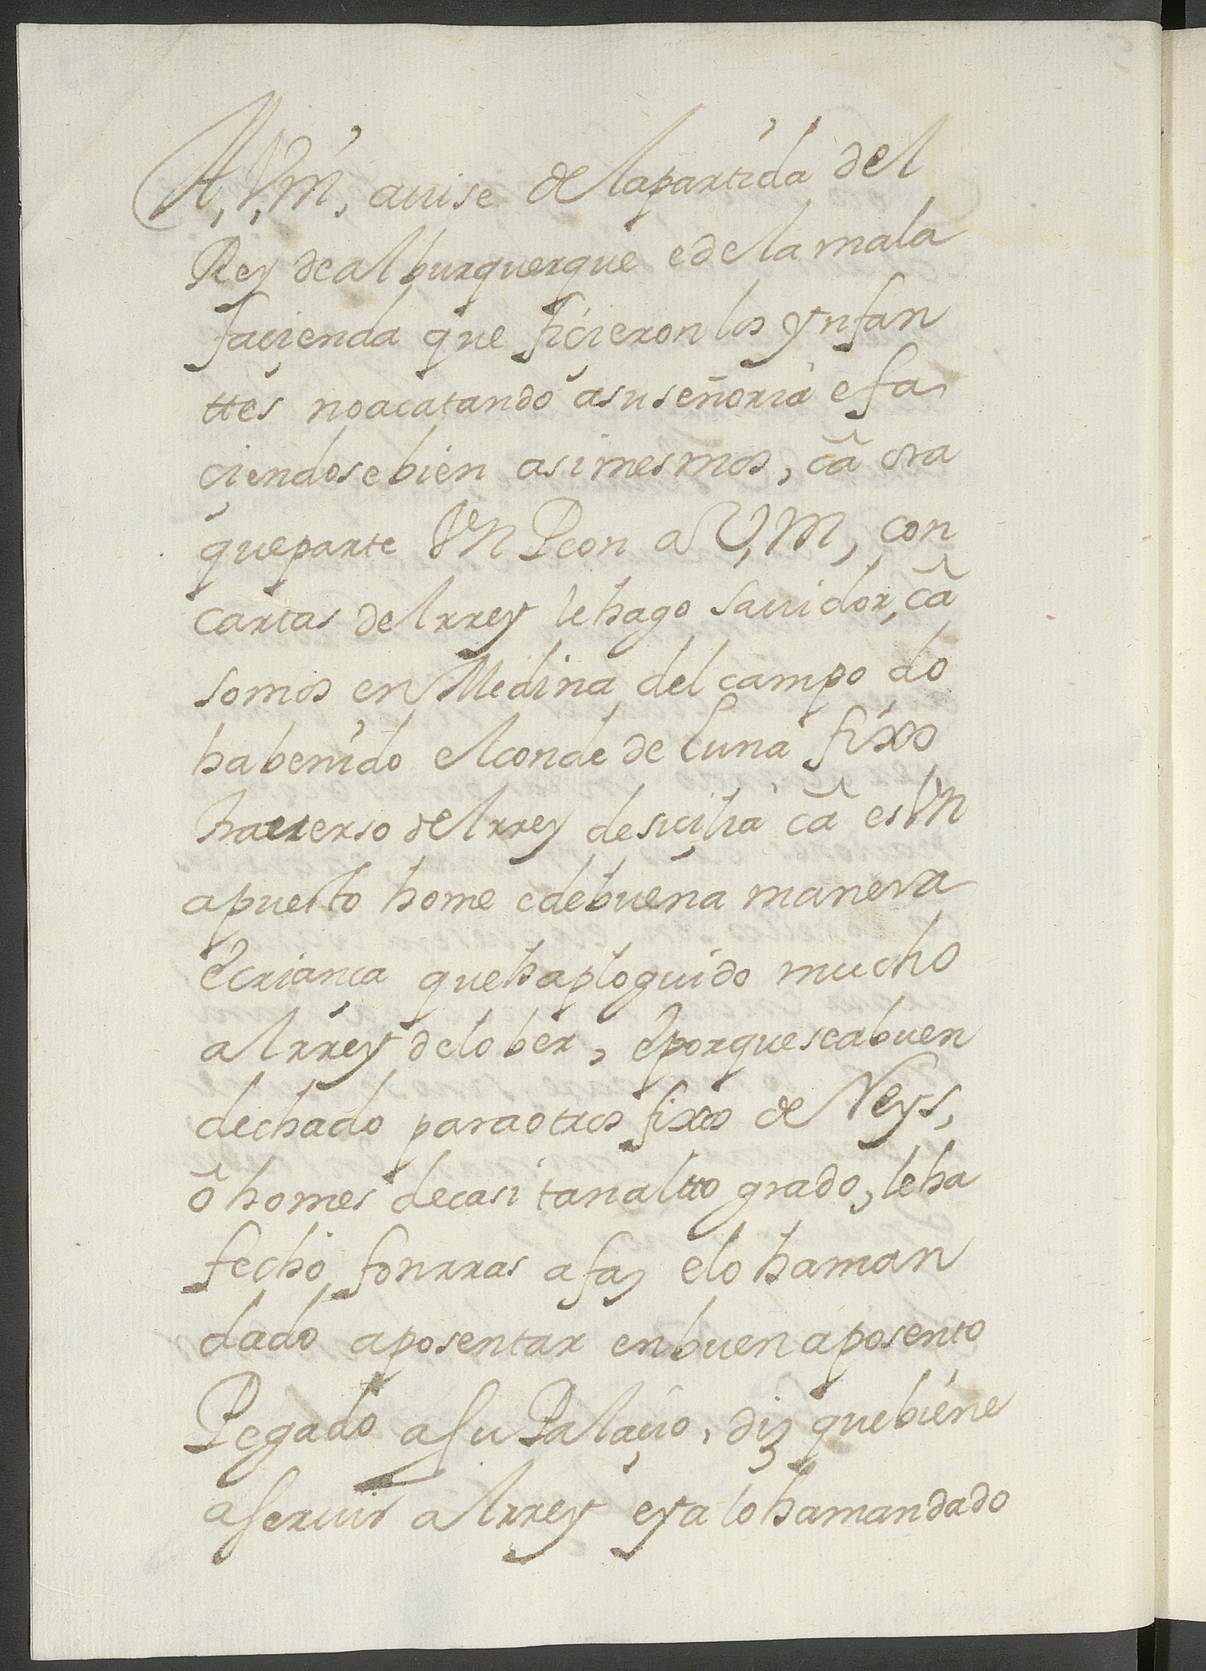 A, V, m, auise de lapartida del
Rey dealburquerque edela mala
façienda que fiçieron los ynfan
ttes noacatando asuseñoria efa
çiendosebien asimesmos, câ ora
queparte Vn Peon a V, M, con
cartas delrrey lehago sauidor, câ
somos en Medina del campo do
habenido elconde de luna fixo
hauerso delrrey desiçilia câ es Vn
apuesto home edebuena manera
ecriança quehaploguido mucho
alrrey delober, eporqueseabuen
dechado paraotros fixos de Reys,
ô homes decasi tanaltto grado, leha
fecho fonrras afaz elo haman
dado aposentar enbuen aposento
Pegado asu Palaçio, diz quebiene
aseruir alrrey eyalohamandado